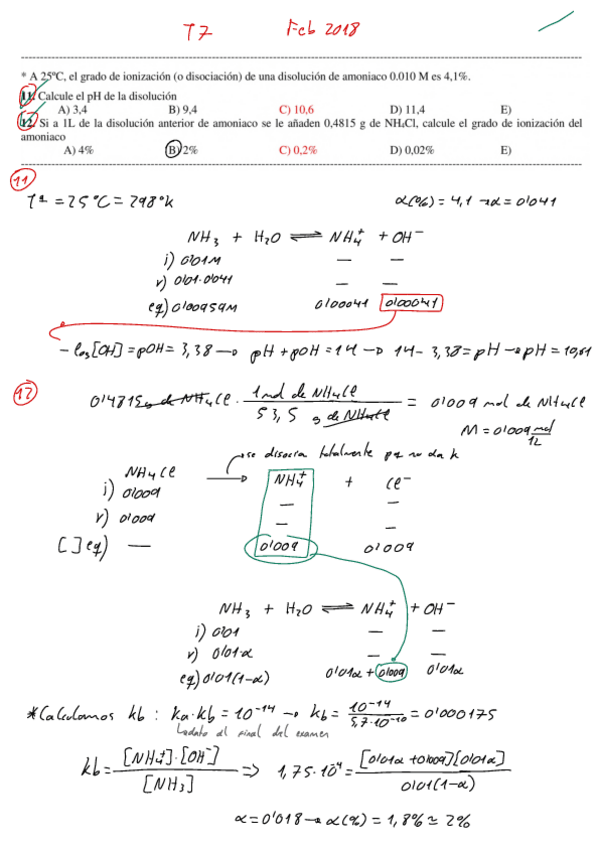 T7 Feb 2018
* A 25ºC, el grado de ionización (o disociación) de una disolución de amoniaco 0.010 M es 4,1%.
11. Calcule el pH de la disolución
A) 3,4 B) 9,4 C) 10,6 D) 11,4 E)
12. Si a 1L de la disolución anterior de amoniaco se le añaden 0,4815 g de NH₄Cl, calcule el grado de ionización del
amoniaco
A) 4% B) 2% C) 0,2% D) 0,02% E)
11
Tª = 25°C = 298°k α(%) = 4,1 → α = 0'041
NH₃ + H₂O ⇌ NH₄⁺ + OH⁻
i) 0'01M — —
r) 0'01·0'041 — —
eq) 0'00959M 0'00041 0'00041
- log[OH] = pOH = 3,38 → pH + pOH = 14 → 14 - 3,38 = pH → pH = 10,61
12
0'4815 g de NH₄Cl · 1 mol de NH₄Cl / 53,5 g de NH₄Cl = 0'009 mol de NH₄Cl
M = 0'009 mol / 1L
se disocia totalmente pq no da k
NH₄Cl → NH₄⁺ + Cl⁻
i) 0'009 — —
r) 0'009 — —
[ ] eq) — 0'009 0'009
NH₃ + H₂O ⇌ NH₄⁺ + OH⁻
i) 0'01 — —
r) 0'01·α — —
eq) 0'01(1-α) 0'01α + 0'009 0'01α
*Calculamos kb : ka·kb = 10⁻¹⁴ → kb = 10⁻¹⁴ / 5,7·10⁻¹⁰ = 0'0000175
dato al final del examen
kb = [NH₄⁺]·[OH⁻] / [NH₃] ⇒ 1,75·10⁻⁴ = [0'01α + 0'009][0'01α] / 0'01(1-α)
α = 0'018 → α(%) = 1,8% ≃ 2%